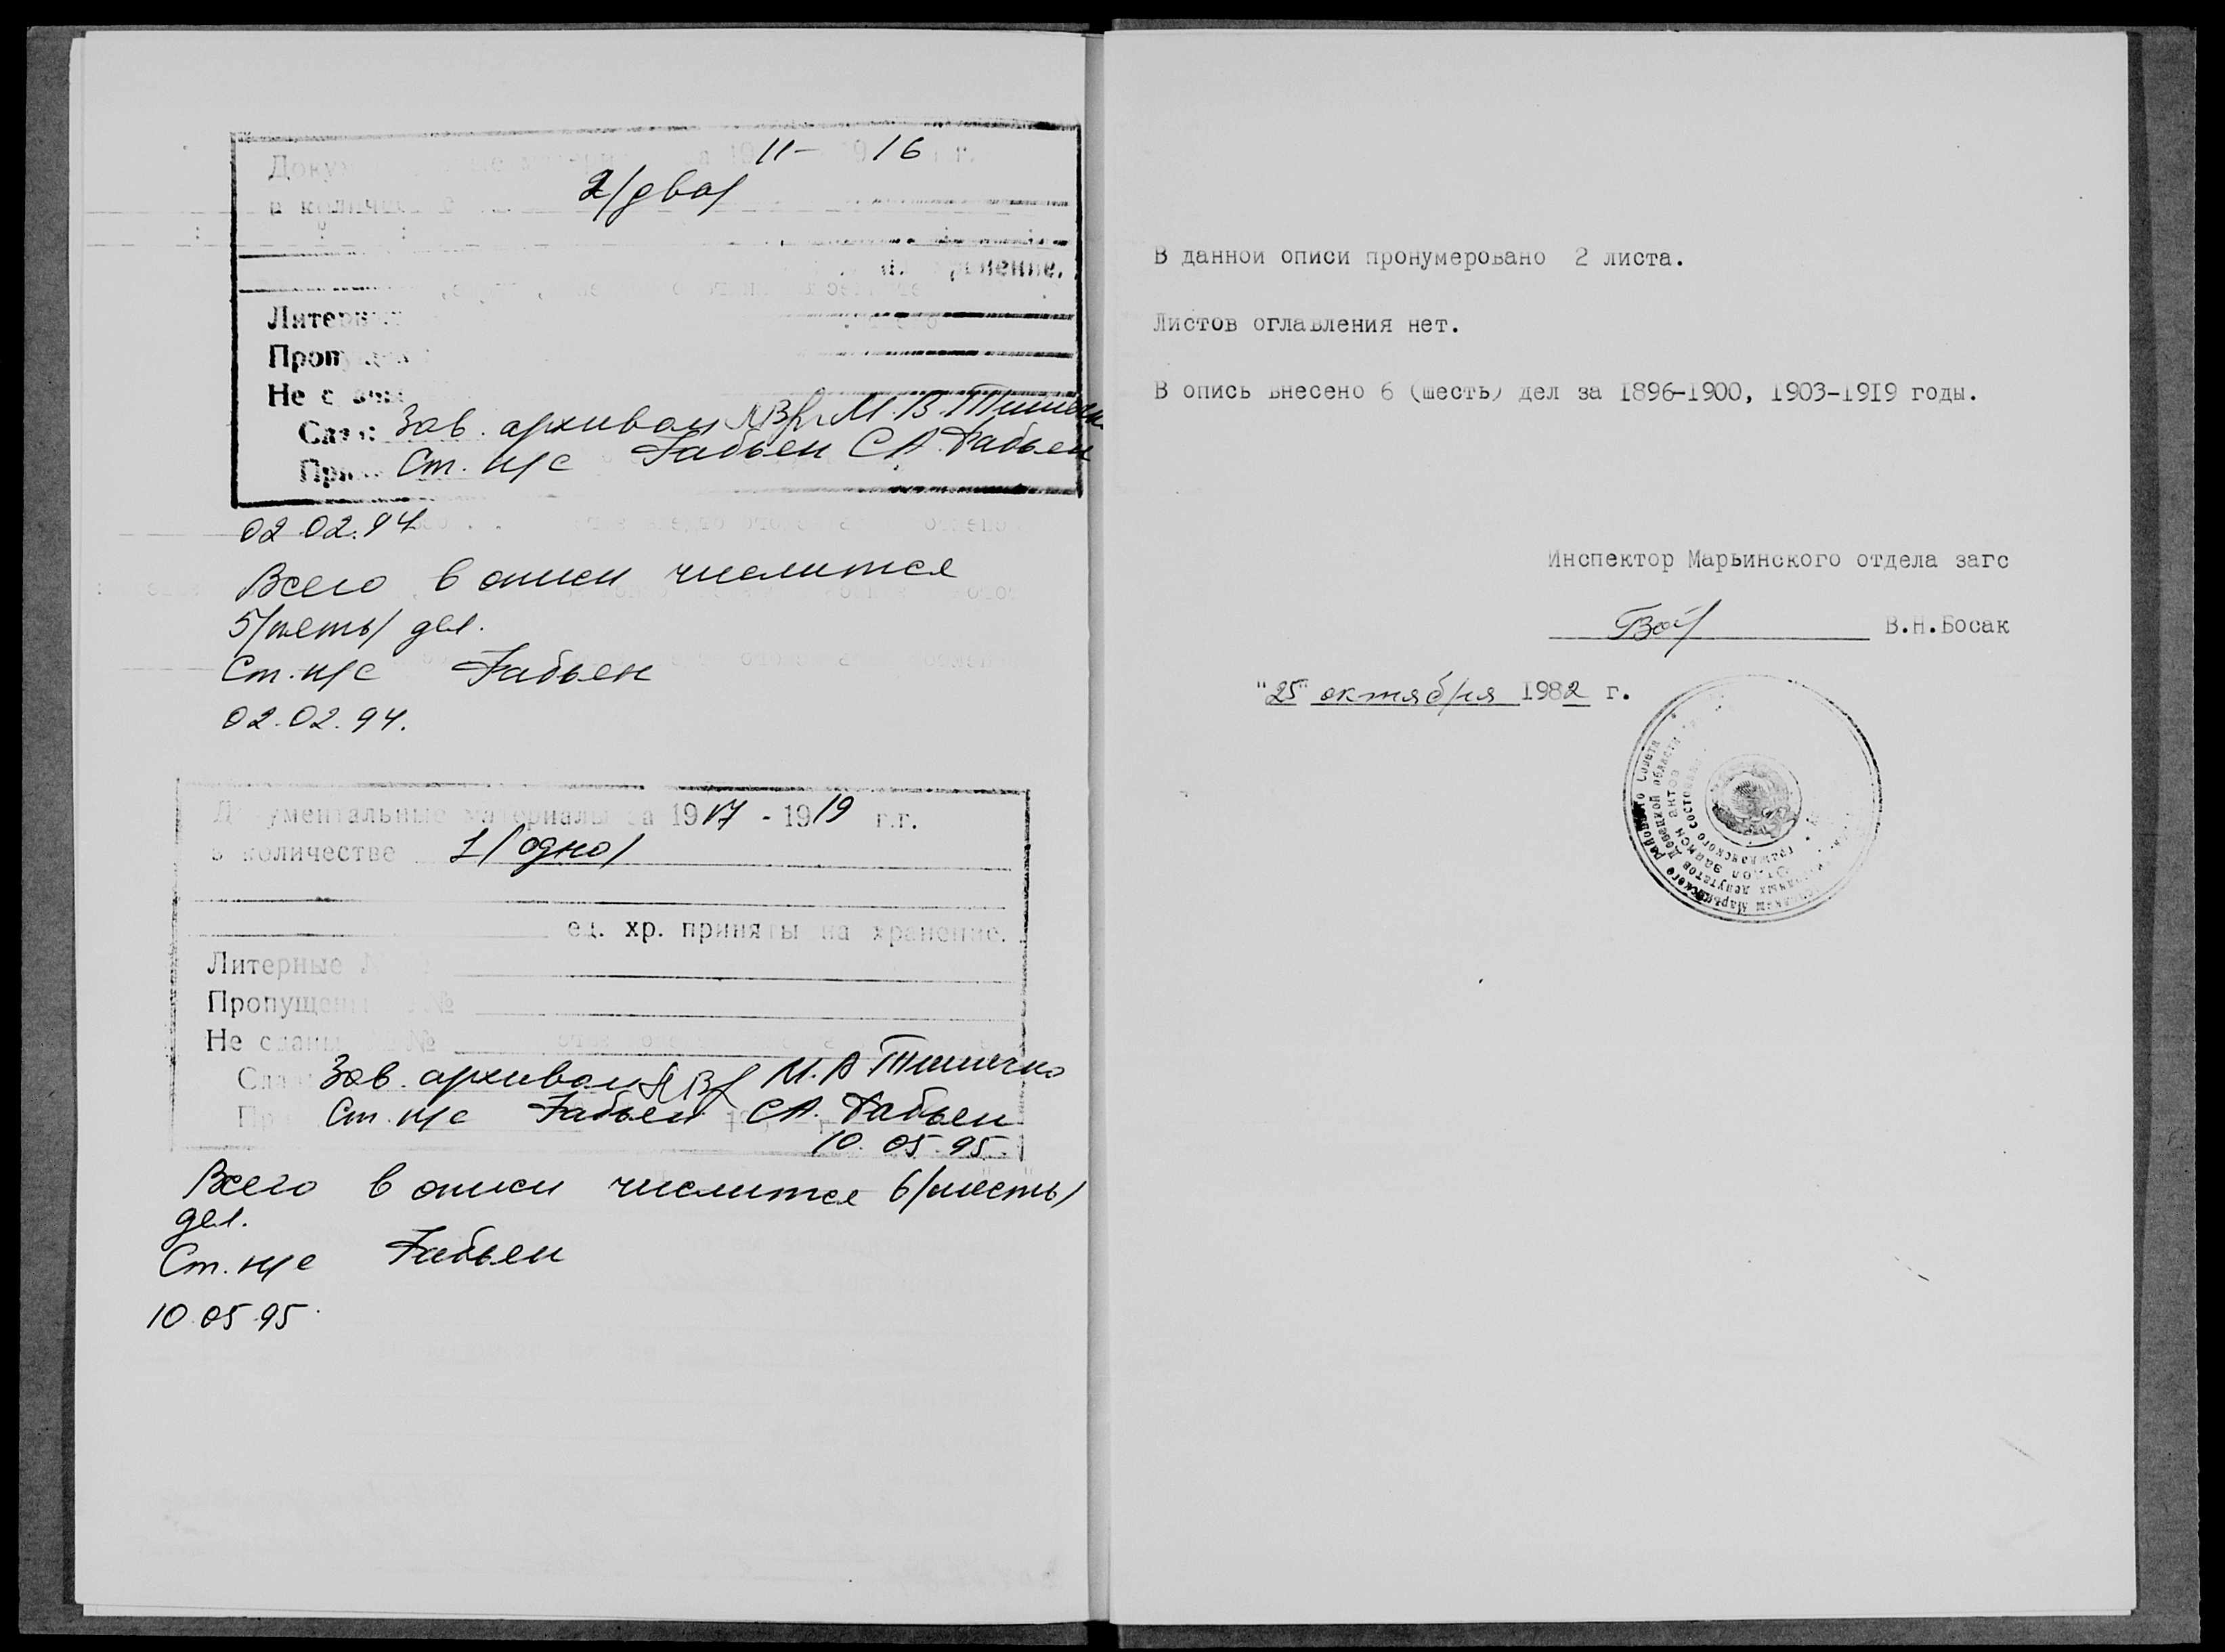 11- 16 г.г.
2/два/
Литерн
Проп
Не с
Зав. архивом М.В.
Ст. н/с Бабьен С.А. Бабьен
02.02.94
Всего в описи числится
5/пять/ дел.
Ст. н/с Бабьен
02.02.94.
Документальные материалы за 1917 - 1919 г.г.
в количестве 1/одно/
ед. хр. приняты на хранение.
Литерные №
Пропущенные №
Не сданы №
Зав. архивом М.А
Ст. н/с Бабьен С.А. Бабьен
10.05.95.
Всего в описи числится 6/шесть/
дел.
Ст. н/с Бабьен
10.05.95.
В данной описи пронумеровано 2 листа.
Листов оглавления нет.
В опись внесено 6 (шесть) дел за 1896-1900, 1903-1919 годы.
Инспектор Марьинского отдела загс
В.Н.Босак
"25" октября 1982 г.